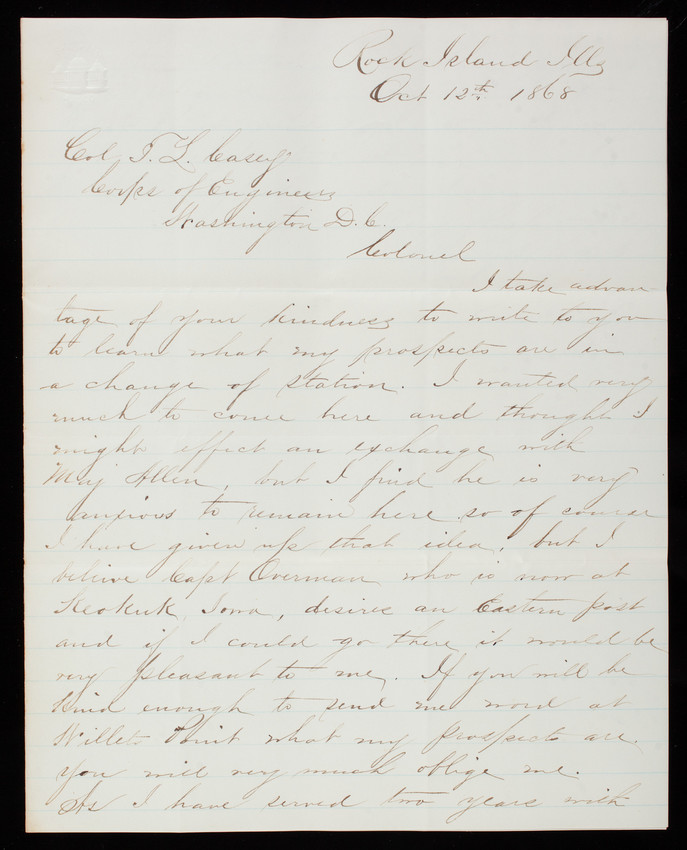 Rock Island Ills
Oct 12th 1868
Col. T. L. Casey
Corps of Engineers
Washington D.C.
Colonel
I take advan-
tage of your kindness to write to you
to learn what my prospects are in
a change of station. I wanted very
much to come here and thought I
might effect an exchange with
Maj Allen, but I find he is very
anxious to remain here so of course
I have given up that idea, but I
believe Capt Overman who is now at
Keokuk, Iowa, desires an Eastern post
and if I could go there it would be
very pleasant to me. If you will be
kind enough to send me word at
Willets Point what my prospects are
you will very much oblige me.
As I have served two years with